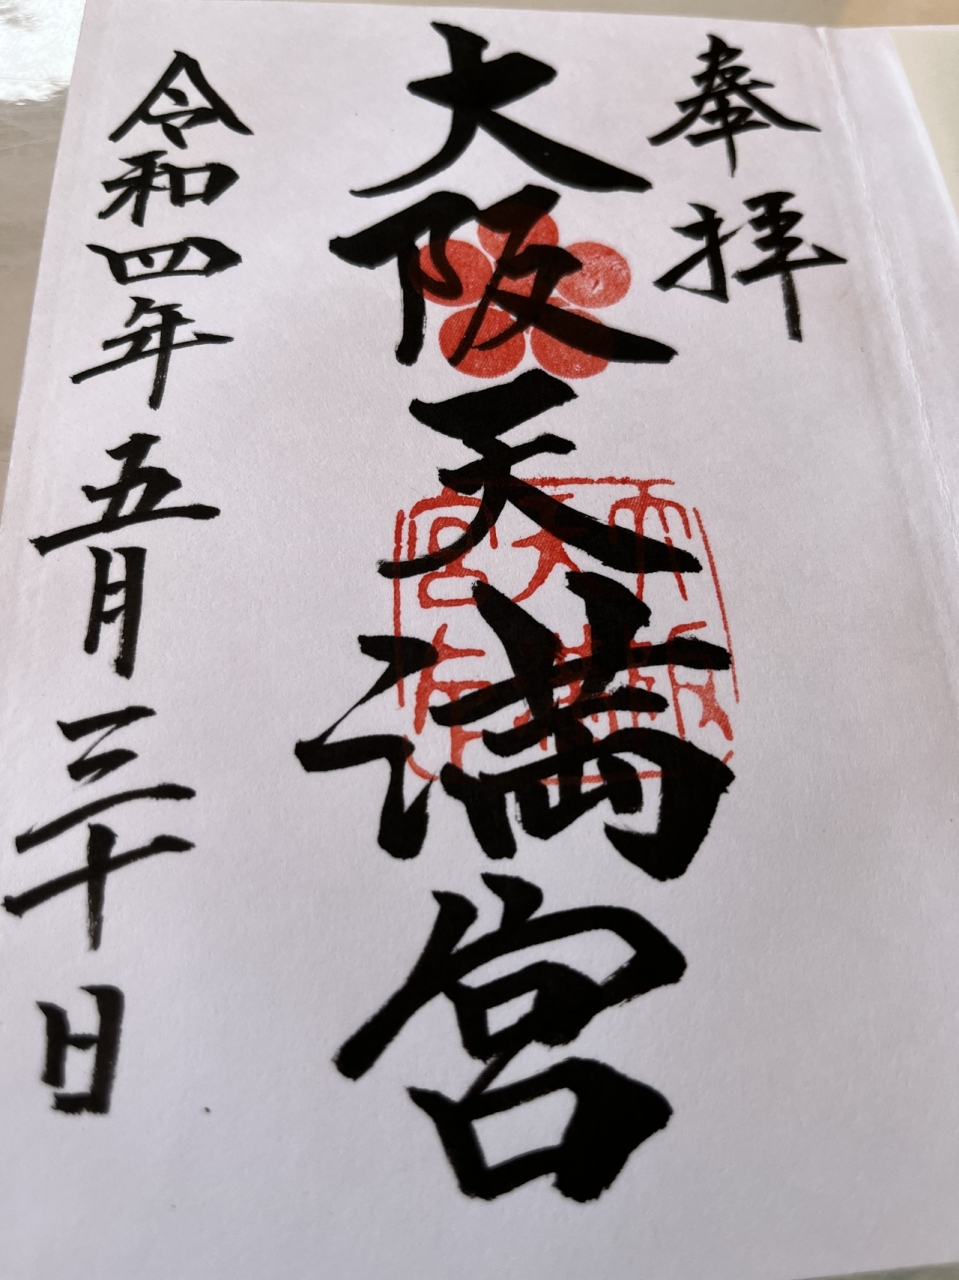 奉拝
大阪天満宮
令和四年五月三十日